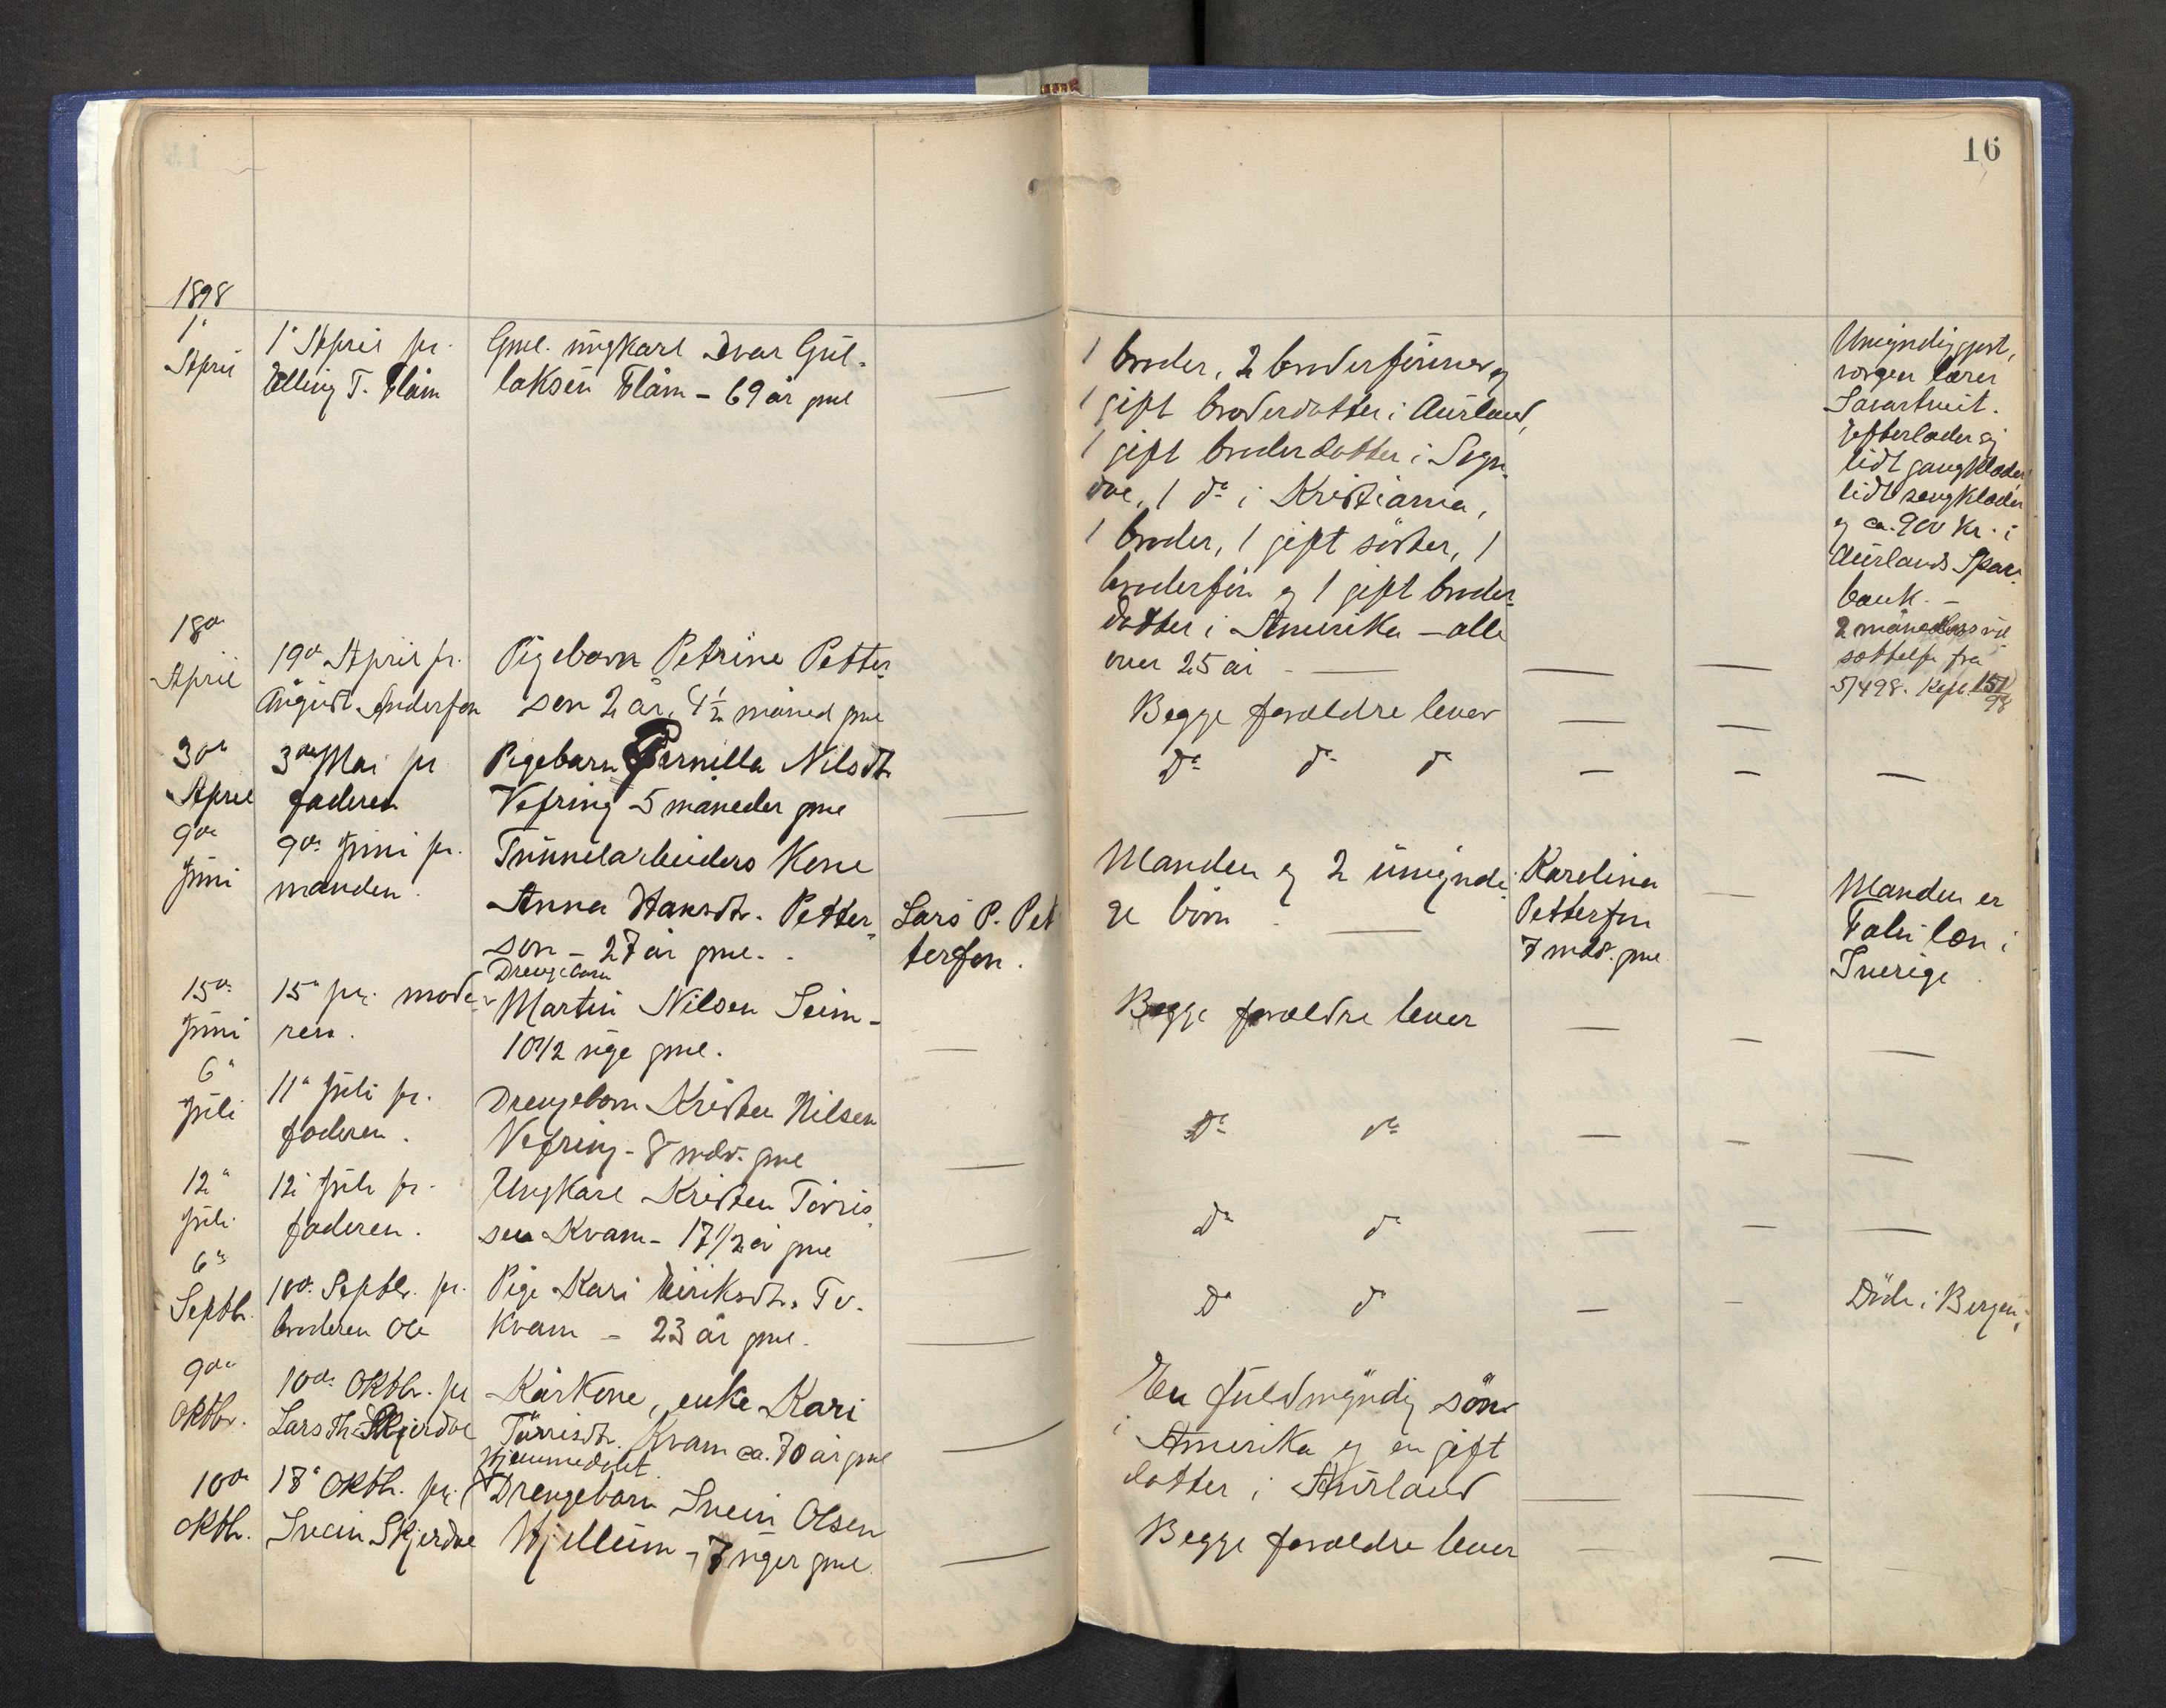 16
1898
1ᵃ
April
1ᵃ April pr.
Elling T. Flåm
Gml. ungkarl Ivar Gul-
laksen Flåm - 69 år gml
—
1 broder, 2 brodersønner og
1 gift broderdatter i Aurland,
1 gift broderdatter i Sogn-
dal, 1 dᵒ i Kristiania,
1 broder, 1 gift søster, 1
brodersøn og 1 gift broder-
datter i Amerika - alle
over 25 år — — —
Umyndiggjort,
Efterlader sig
lidt gangklæder
lidt sengklæder
og ca. 900 kr. i
Aurlands Spare-
bank. -
2 måneders
fra
5/4 98. 151/98
18de
April
19de April pr.
August Anderson
Pigebarn Petrine Petter-
sen 2 år, 4½ måned gml
Begge forældre lever — —
30te
April
3die Mai pr
faderen
Pigebarn Pernilla Nilsdtr
Vefring - 5 måneder gml —
Dᵒ dᵒ dᵒ — — —
9de
Juni
9de Juni pr.
manden.
Tunnelarbeiders Kone
Anna Hansdtr. Petter-
son - 27 år gml. -
Lars P. Pet
terson.
Manden og 2 umyndi-
ge børn —
Karolina
Petterson
7 mdr. gml
—
Manden er
i
Sverige
15de
Juni
15ᵃ pr. mode-
ren.
Drengebarn
Martin Nilsen Seim -
10½ uge gml.
—
Begge forældre lever — — —
6ᵃ
Juli
11ᵃ Juli pr.
faderen.
Drengebarn Kristen Nilsen
Vefring - 8 mdr. gml —
Dᵒ dᵒ — — —
12ᵃ
Juli
12 Juli pr.
faderen.
Ungkarl Kristen Torris-
sen Kvam - 17½ år gml —
Dᵒ dᵒ — — —
6ᵗᵉ
Septbr.
10de Septbr. pr.
broderen Ole
Pige Kari Eiriksdtr. Tv.
Kvam - 23 år gml. —
Dᵒ dᵒ — —
Døde i Bergen,
9de
Oktbr.
10de Oktbr. pr
Lars Th. Skjerdal
Kårkone, enke Kari
Torrisdtr. Kvam ca. 70 år gml —
En fuldmyndig søn
i Amerika og en gift
datter i Aurland — —
10de
Oktbr.
18ᵃ Oktbr. pr.
Svein Skjerdal
Hjemmedøbt
Drengebarn Svein Olsen
Hjellum - 7 uger gml —
Begge forældre lever — —